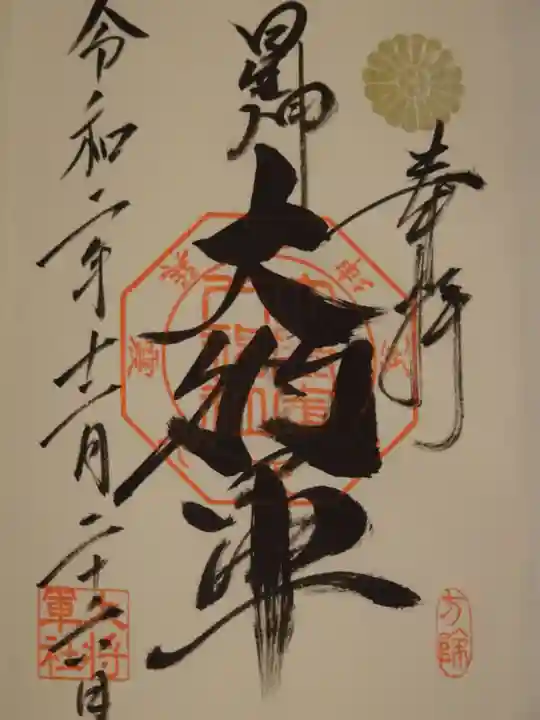 奉拝
星神
大将軍
令和二年十二月二十六日
大将軍社
方除